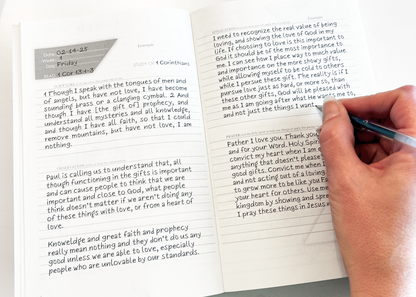 DATE: 02-14-25
TIME:
DAY: Friday
READ: 1 Cor 13:1-3
Example
STUDY OF 1 Corinthians
1 Though I speak with the tongues of men and
of angels, but have not love, I have become
sounding brass or a clanging cymbal. 2 And
though I have [the gift of] prophecy, and
understand all mysteries and all knowledge,
and though I have all faith, so that I could
remove mountains, but have not love, I am
nothing.
Paul is calling us to understand that, all
though functioning in the gifts is important
and can cause people to think that we are
important and close to God, what people
think doesn't matter if we aren't doing any
of these things with love, or from a heart of
love.
Knoweldge and great faith and prophecy
really mean nothing and they don't do us any
good unless we are able to love, especially
people who are unlovable by our standards.
Example
I need to recognize the real value of being
loving, and showing the love of God in my
life. If choosing to love is this important to
God it should be of the most importance to
me. I can see how I place way to much value
and importance on the more showy gifts,
while allowing myself to be cold to others
while I persue these gift. The reality is if I
pursue love just as hard, or more so, than
these other gifts, God will be pleased with
me as I am going after what He wants me to,
and not just the things I want.
Father I love you. Thank you
and for your Word. Holy Spiri
convict my heart when I am
anything that doesn't please
good gifts. Convict me when I
and not acting out of a loving
to grow more to be like you Fa
your heart for others. Use me
kingdom by showing and spre
I pray these things in Jesus n